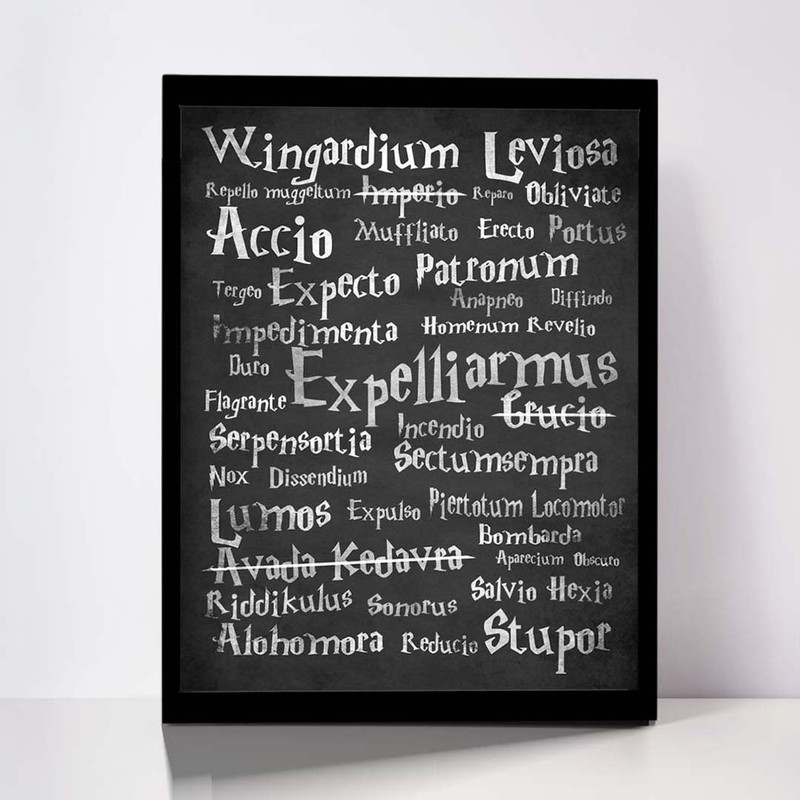 Wingardium Leviosa
Repello muggeltum Imperio Reparo Obliviate
Accio Muffliato Erecto Portus
Tergeo Expecto Patronum
Anapneo Diffindo
Impedimenta Homenum Revelio
Duro Expelliarmus
Flagrante Crucio
Serpensortia Incendio
Sectumsempra
Nox Dissendium
Lumos Expulso Piertotum Locomotor
Bombarda
Avada Kedavra Aparecium Obscuro
Riddikulus Sonorus Salvio Hexia
Alohomora Reducio Stupor